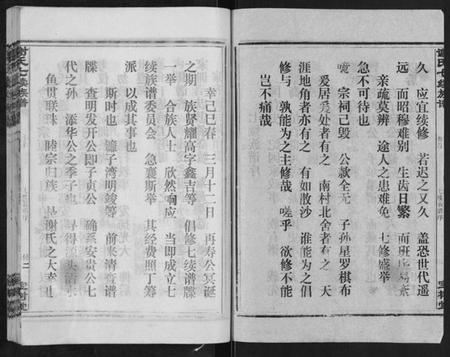 久 應宜续修 若迟之又久 盖恐世代遥
远 而昭穆难别 生齿日繁 而班
亲疏莫辨 途人之患难免 七修盛举
急不可待也
噫 宗祠己毁 公款全无 子孙星罗棋布
爰居爰处者有之 南村北舍者有之 天
涯地角者亦有之 有如散沙 谁能为之倡
修与 孰能为之主修哉 嗟乎 欲修不能
岂不痛哉
幸己巳春 三月十二日 再寿公冥诞
之期 族贤耀高字鑫吉等 倡修七续谱牒
一举 合族人士 欣然响应 当即成立七
续族谱委员会 急襄斯举 其经费照丁筹
派 以成其事也
斯时也 濂子湾明竣等 前来清奔谱
牒 查明发开公即子贞公 确系安贵公七
代之孙 添华公之季子也 寻得源头
鱼贯联珠 睦宗归族 是谢氏之大